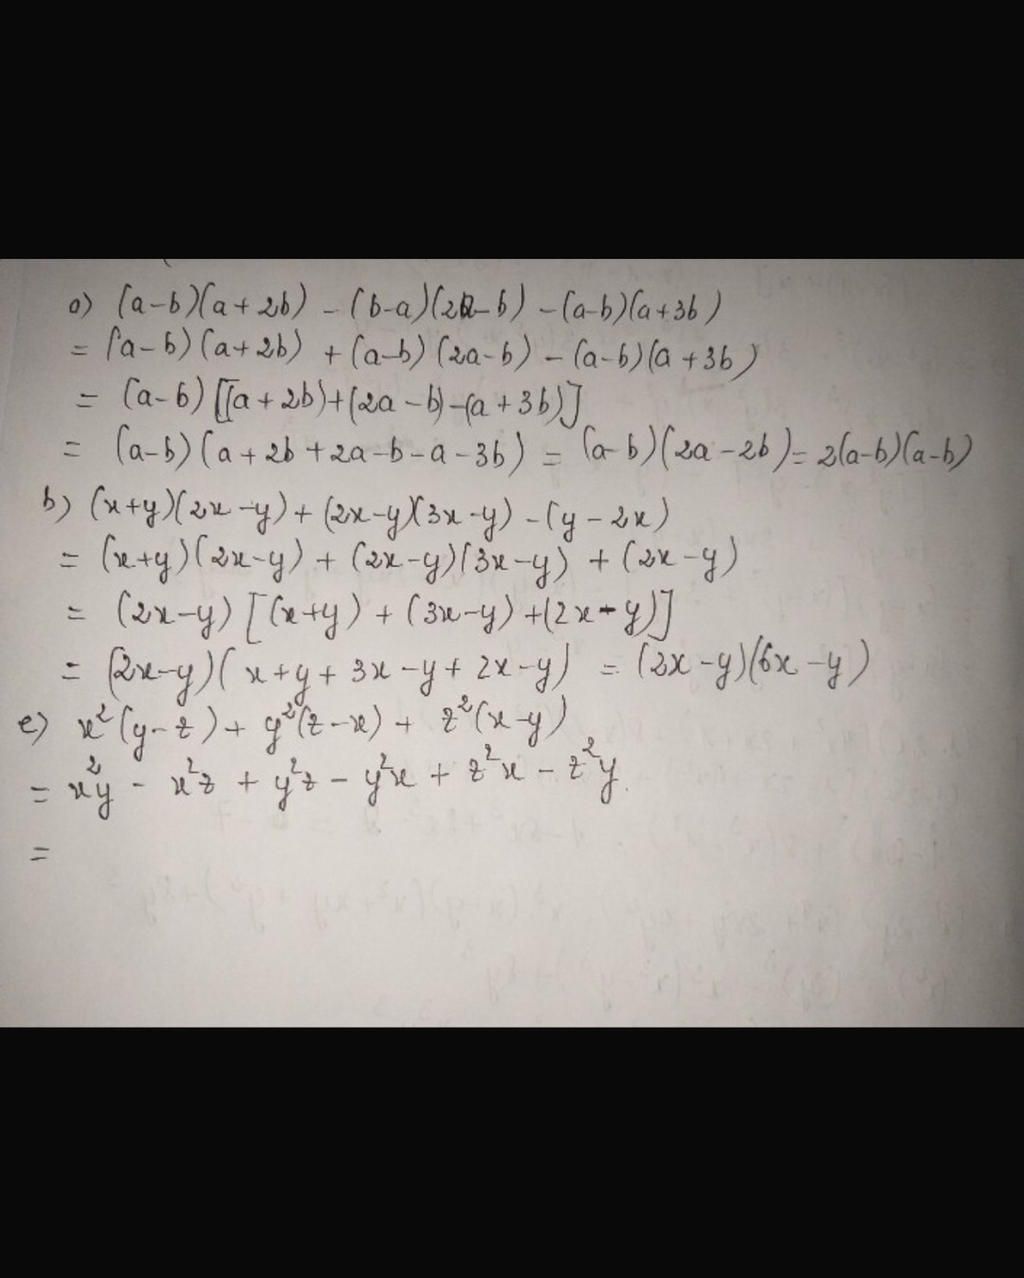 a) (a-b)(a+2b) - (b-a)(2a-b) - (a-b)(a+3b)
= (a-b)(a+2b) + (a-b)(2a-b) - (a-b)(a+3b)
= (a-b)[(a+2b)+(2a-b)-(a+3b)]
= (a-b)(a+2b+2a-b-a-3b) = (a-b)(2a-2b) = 2(a-b)(a-b)
b) (x+y)(2x-y) + (2x-y)(3x-y) - (y-2x)
= (x+y)(2x-y) + (2x-y)(3x-y) + (2x-y)
= (2x-y)[(x+y) + (3x-y) + (2x-y)]
= (2x-y)(x+y+3x-y+2x-y) = (2x-y)(6x-y)
e) x²(y-z) + y²(z-x) + z²(x-y)
= x²y - x²z + y²z - y²x + z²x - z²y.
=